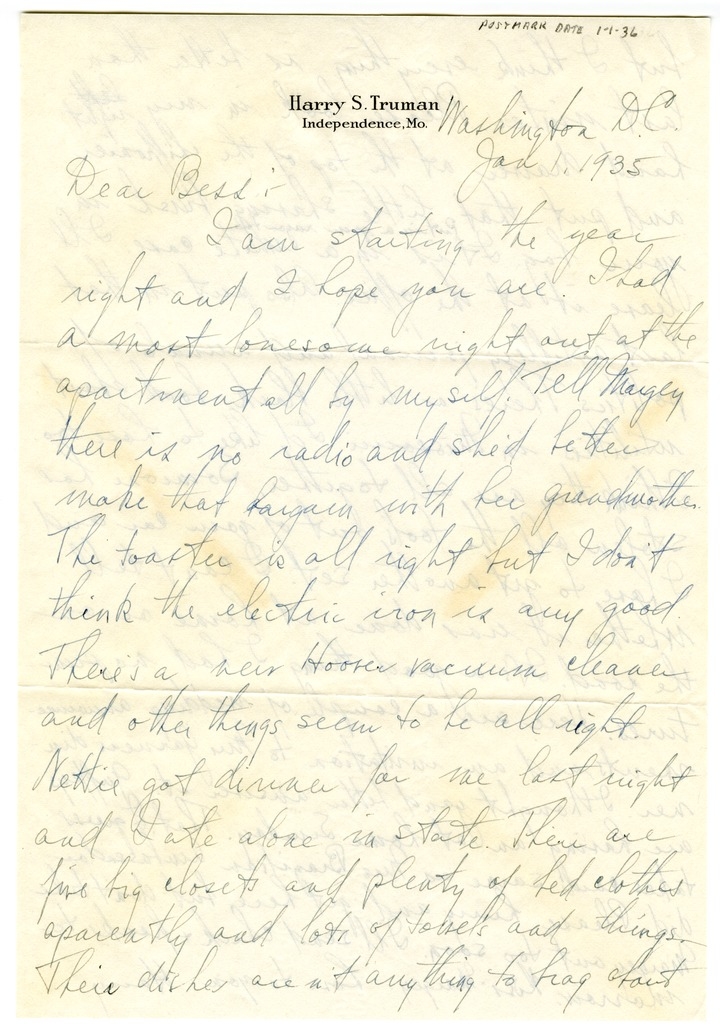 POSTMARK DATE 1-1-36
Harry S. Truman
Independence, Mo.
Washington D.C.
Jan 1, 1935
Dear Bess :-
I am starting the year
right and I hope you are. I had
a most lonesome night out at the
apartment all by myself. Tell Margey
there is no radio and she'd better
make that bargain with her grandmother.
The toaster is all right but I don't
think the electric iron is any good.
There's a new Hoover vacuum cleaner
and other things seem to be all right.
Nettie got dinner for me last night
and I ate alone in state. There are
five big closets and plenty of bed clothes
aparently and lots of towels and things.
Their dishes aren't anything to brag about